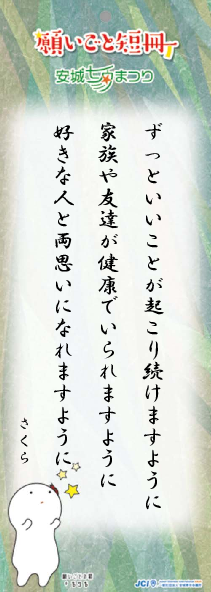 願いごと短冊
安城七夕まつり
ずっといいことが起こり続けますように
家族や友達が健康でいられますように
好きな人と両思いになれますように
さくら
JCI